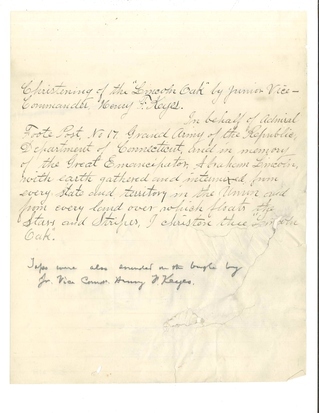 Christening of the "Lincoln Oak" by Junior Vice-
Commander, Henry F. Keyes.
In behalf of Admiral
Foote Post, No 17, Grand Army of the Republic,
Department of Connecticut, and in memory
of the Great Emancipator, Abraham Lincoln,
with earth gathered and intermixed from
every state and territory in the Union and
from every land over which floats the
Stars and Stripes, I christen thee "Lincoln
Oak".
Taps were also sounded on the bugle by
Jr. Vice Comdr. Henry F. Keyes.